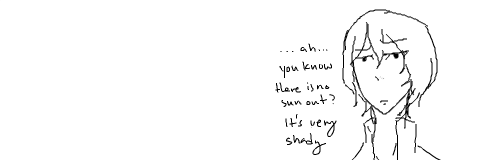 ... ah...
you know
there is no
sun out?
It's very
shady